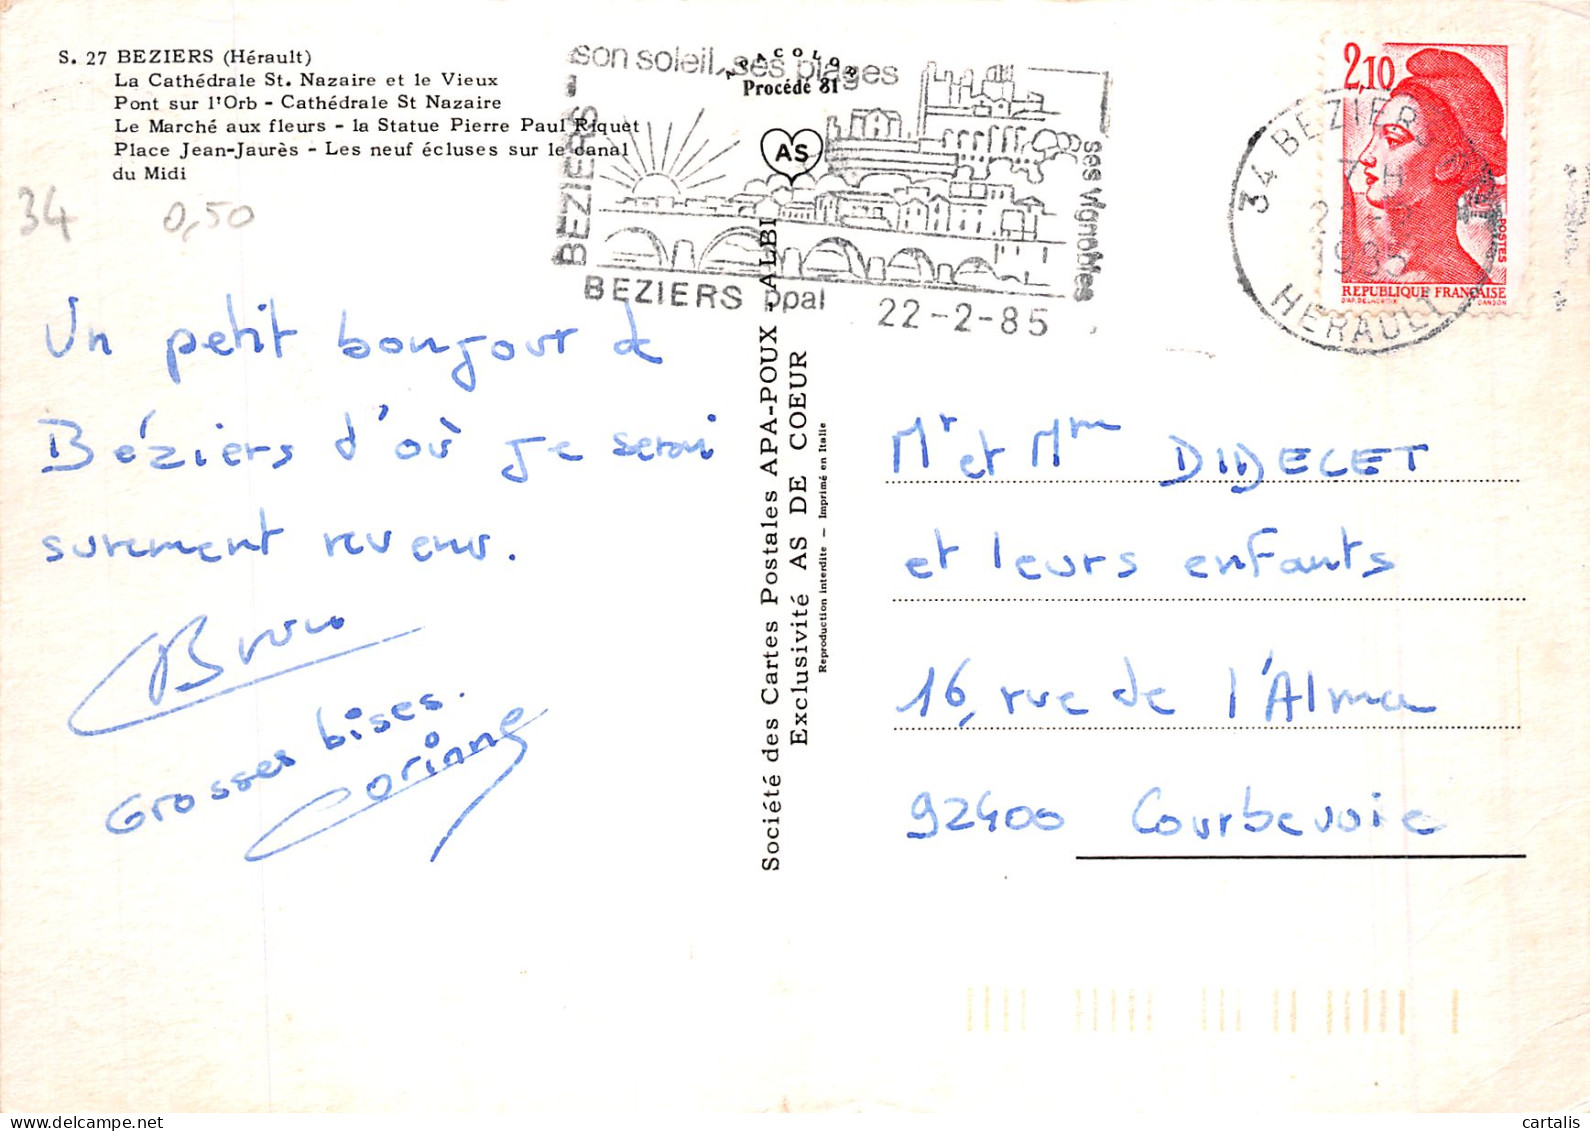 S. 27 BEZIERS (Hérault)
La Cathédrale St. Nazaire et le Vieux
Pont sur l'Orb - Cathédrale St Nazaire
Le Marché aux fleurs - la Statue Pierre Paul Riquet
Place Jean-Jaurès - Les neuf écluses sur le canal
du Midi
34
0,50
son soleil, ses plages
APACOLOR
Procédé 81
AS
BEZIERS -
ses vignobles
BEZIERS ppal
22-2-85
34 BEZIERS
7 H
1985
HERAULT
2,10
POSTES
REPUBLIQUE FRANÇAISE
D'AP. DELACROIX
GANDON
Un petit bonjour de
Béziers d'où je serai
surement revenu.
Bruno
Grosses bises.
Corinne
Société des Cartes Postales APA-POUX - ALBI
Exclusivité AS DE COEUR
Reproduction interdite — Imprimé en Italie
Mr et Mme DIDELET
et leurs enfants
16, rue de l'Alma
92400 Courbevoie
cartalis